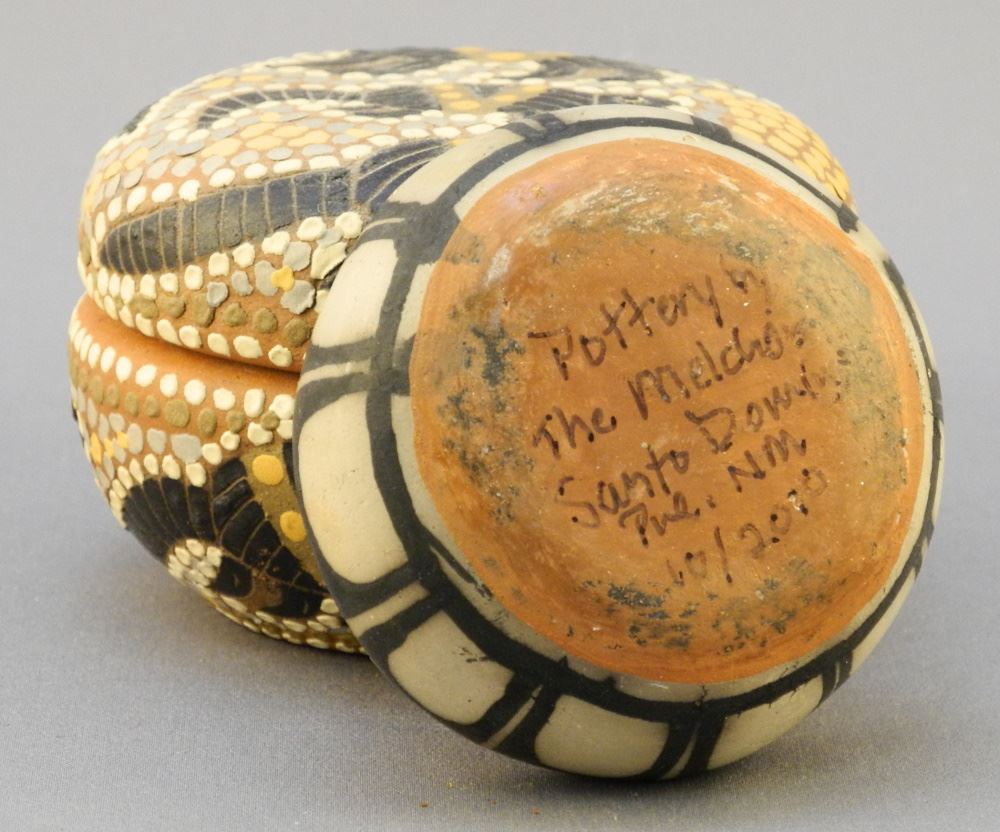 Pottery by
The Melchor
Santo Domingo
Pue. NM
10/2010